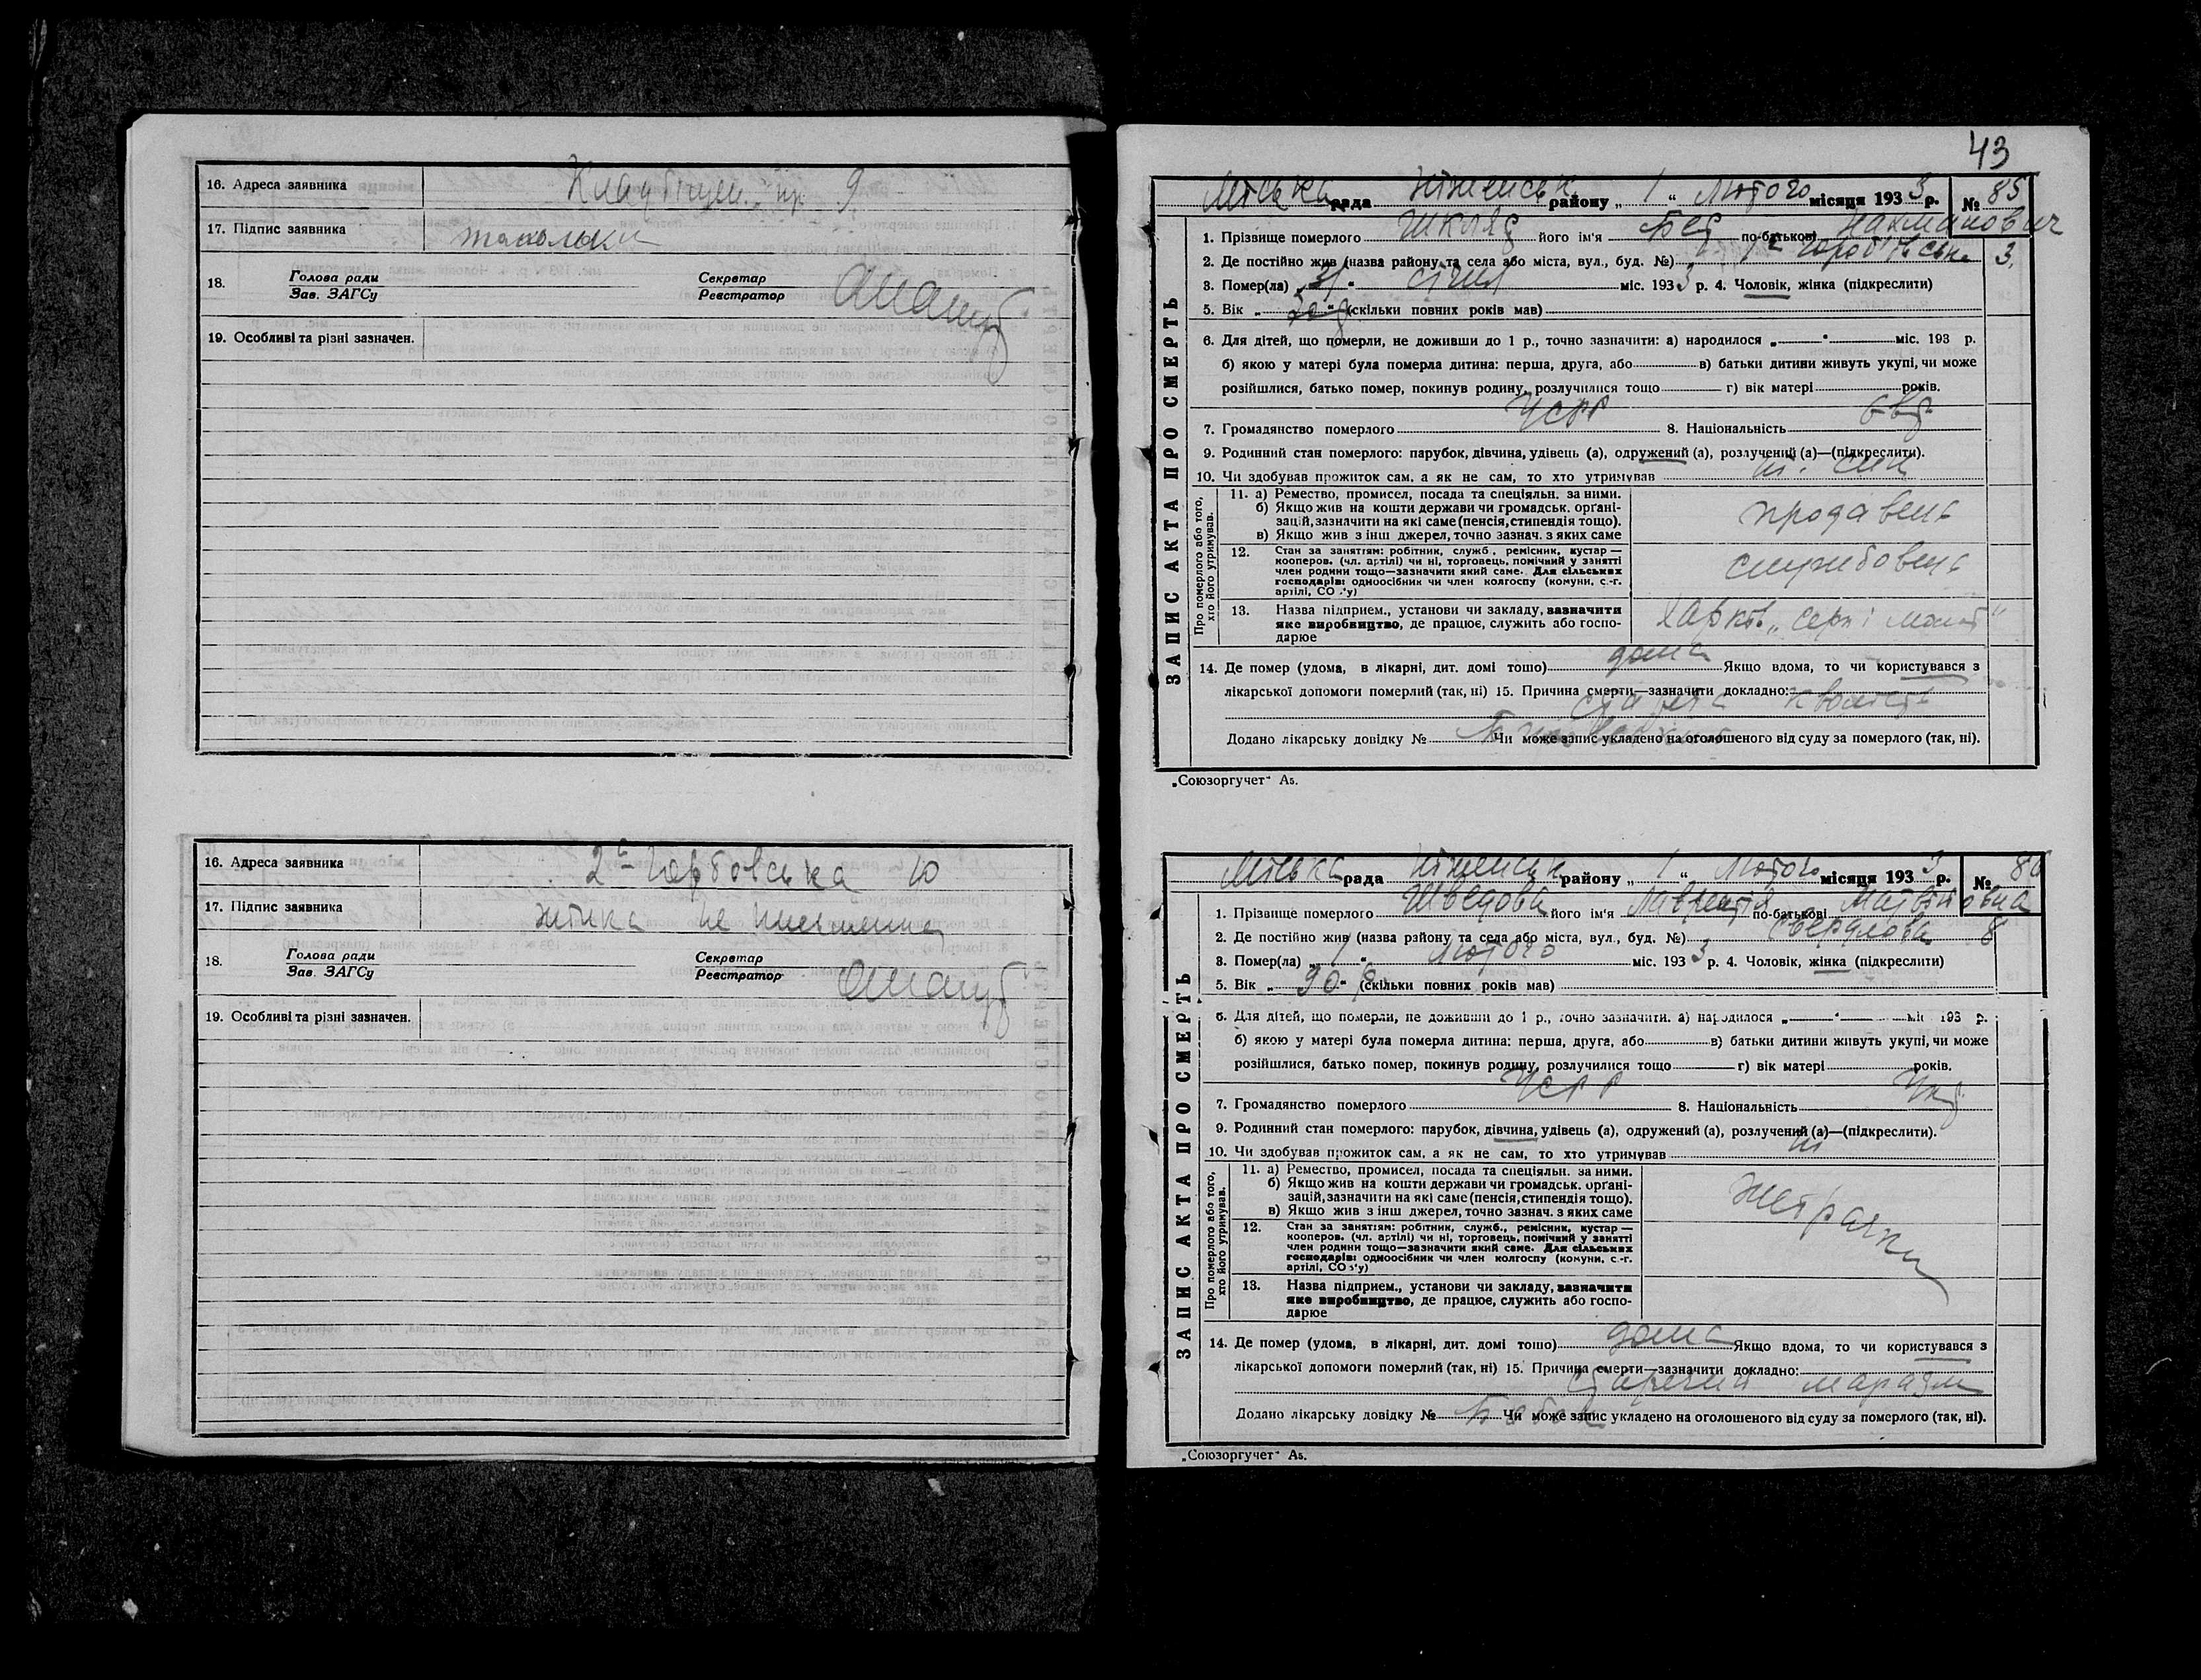 16. Адреса заявника 9
17. Підпис заявника
18. Голова ради Секретар
Зав. ЗАГСу Реєстратор
19. Особливі та різні зазначен.
16. Адреса заявника 10
17. Підпис заявника не письменна
18. Голова ради Секретар
Зав. ЗАГСу Реєстратор
19. Особливі та різні зазначен.
43
ЗАПИС АКТА ПРО СМЕРТЬ
Міська рада Ніженськ району „ 1 “ Лютого місяця 1933 р. № 85
1. Прізвище померлого Шкляр його ім'я Бер по-батькові Нахманович
2. Де постійно жив (назва району та села або міста, вул., буд. №) 3.
3. Помер(ла) „31“ січня міс. 1933 р. 4. Чоловік, жінка (підкреслити)
5. Вік „ “ (скільки повних років мав)
6. Для дітей, що померли, не доживши до 1 р., точно зазначити: а) народилося „ “ міс. 193 р.
б) якою у матері була померла дитина: перша, друга, або в) батьки дитини живуть укупі, чи може
розійшлися, батько помер, покинув родину, розлучилися тощо г) вік матері років.
7. Громадянство померлого УСРР 8. Національність евр
9. Родинний стан померлого: парубок, дівчина, удівець (а), одружений (а), розлучений (а)—(підкреслити).
10. Чи здобував прожиток сам, а як не сам, то хто утримував ні. син
Про померлого або того, хто його утримував.
11. а) Ремество, промисел, посада та спеціяльн. за ними.
б) Якщо жив на кошти держави чи громадськ. орґані-
зацій, зазначити на які саме (пенсія, стипендія тощо).
в) Якщо жив з інш джерел, точно зазнач. з яких саме
продавець
12. Стан за заняттям: робітник, служб., ремісник, кустар —
кооперов. (чл. артілі) чи ні, торговець, помічний у занятті
член родини тощо—зазначити який саме. Для сільських
господарів: одноосібник чи член колгоспу (комуни, с.-г.
артілі, СОЗ'у)
службовець
13. Назва підприєм., установи чи закладу, зазначити
яке виробництво, де працює, служить або госпо-
дарює
Харків „Серп і молот“
14. Де помер (удома, в лікарні, дит. домі тощо) дома Якщо вдома, то чи користувався з
лікарської допомоги померлий (так, ні) 15. Причина смерти—зазначити докладно:
стареча кволість
Додано лікарську довідку № Чи може запис укладено на оголошеного від суду за померлого (так, ні).
„Союзоргучет“ А5.
ЗАПИС АКТА ПРО СМЕРТЬ
Міська рада Ніженськ району „ 1 “ Лютого місяця 1933 р. № 86
1. Прізвище померлого Шведова його ім'я по-батькові Матвіївна
2. Де постійно жив (назва району та села або міста, вул., буд. №) Свердлова 8
3. Помер(ла) „ 1 “ лютого міс. 1933 р. 4. Чоловік, жінка (підкреслити)
5. Вік „ 90 “ р. (скільки повних років мав)
6. Для дітей, що померли, не доживши до 1 р., точно зазначити. а) народилося „ “ міс 193 р.
б) якою у матері була померла дитина: перша, друга, або в) батьки дитини живуть укупі, чи може
розійшлися, батько помер, покинув родину, розлучилися тощо г) вік матері років.
7. Громадянство померлого УСРР 8. Національність Укр
9. Родинний стан померлого: парубок, дівчина, удівець (а), одружений (а), розлучений (а)—(підкреслити).
10. Чи здобував прожиток сам, а як не сам, то хто утримував ні
Про померлого або того, хто його утримував.
11. а) Ремество, промисел, посада та спеціяльн. за ними.
б) Якщо жив на кошти держави чи громадськ. орґані-
зацій, зазначити на які саме (пенсія, стипендія тощо).
в) Якщо жив з інш джерел, точно зазнач. з яких саме
12. Стан за заняттям: робітник, служб., ремісник, кустар —
кооперов. (чл. артілі) чи ні, торговець, помічний у занятті
член родини тощо—зазначити який саме. Для сільських
господарів: одноосібник чи член колгоспу (комуни, с.-г.
артілі, СОЗ'у)
13. Назва підприєм., установи чи закладу, зазначити
яке виробництво, де працює, служить або госпо-
дарює
14. Де помер (удома, в лікарні, дит. домі тощо) дома Якщо вдома, то чи користувався з
лікарської допомоги померлий (так, ні) 15. Причина смерти—зазначити докладно:
старечий маразм
Додано лікарську довідку № Чи може запис укладено на оголошеного від суду за померлого (так, ні).
„Союзоргучет“ А5.